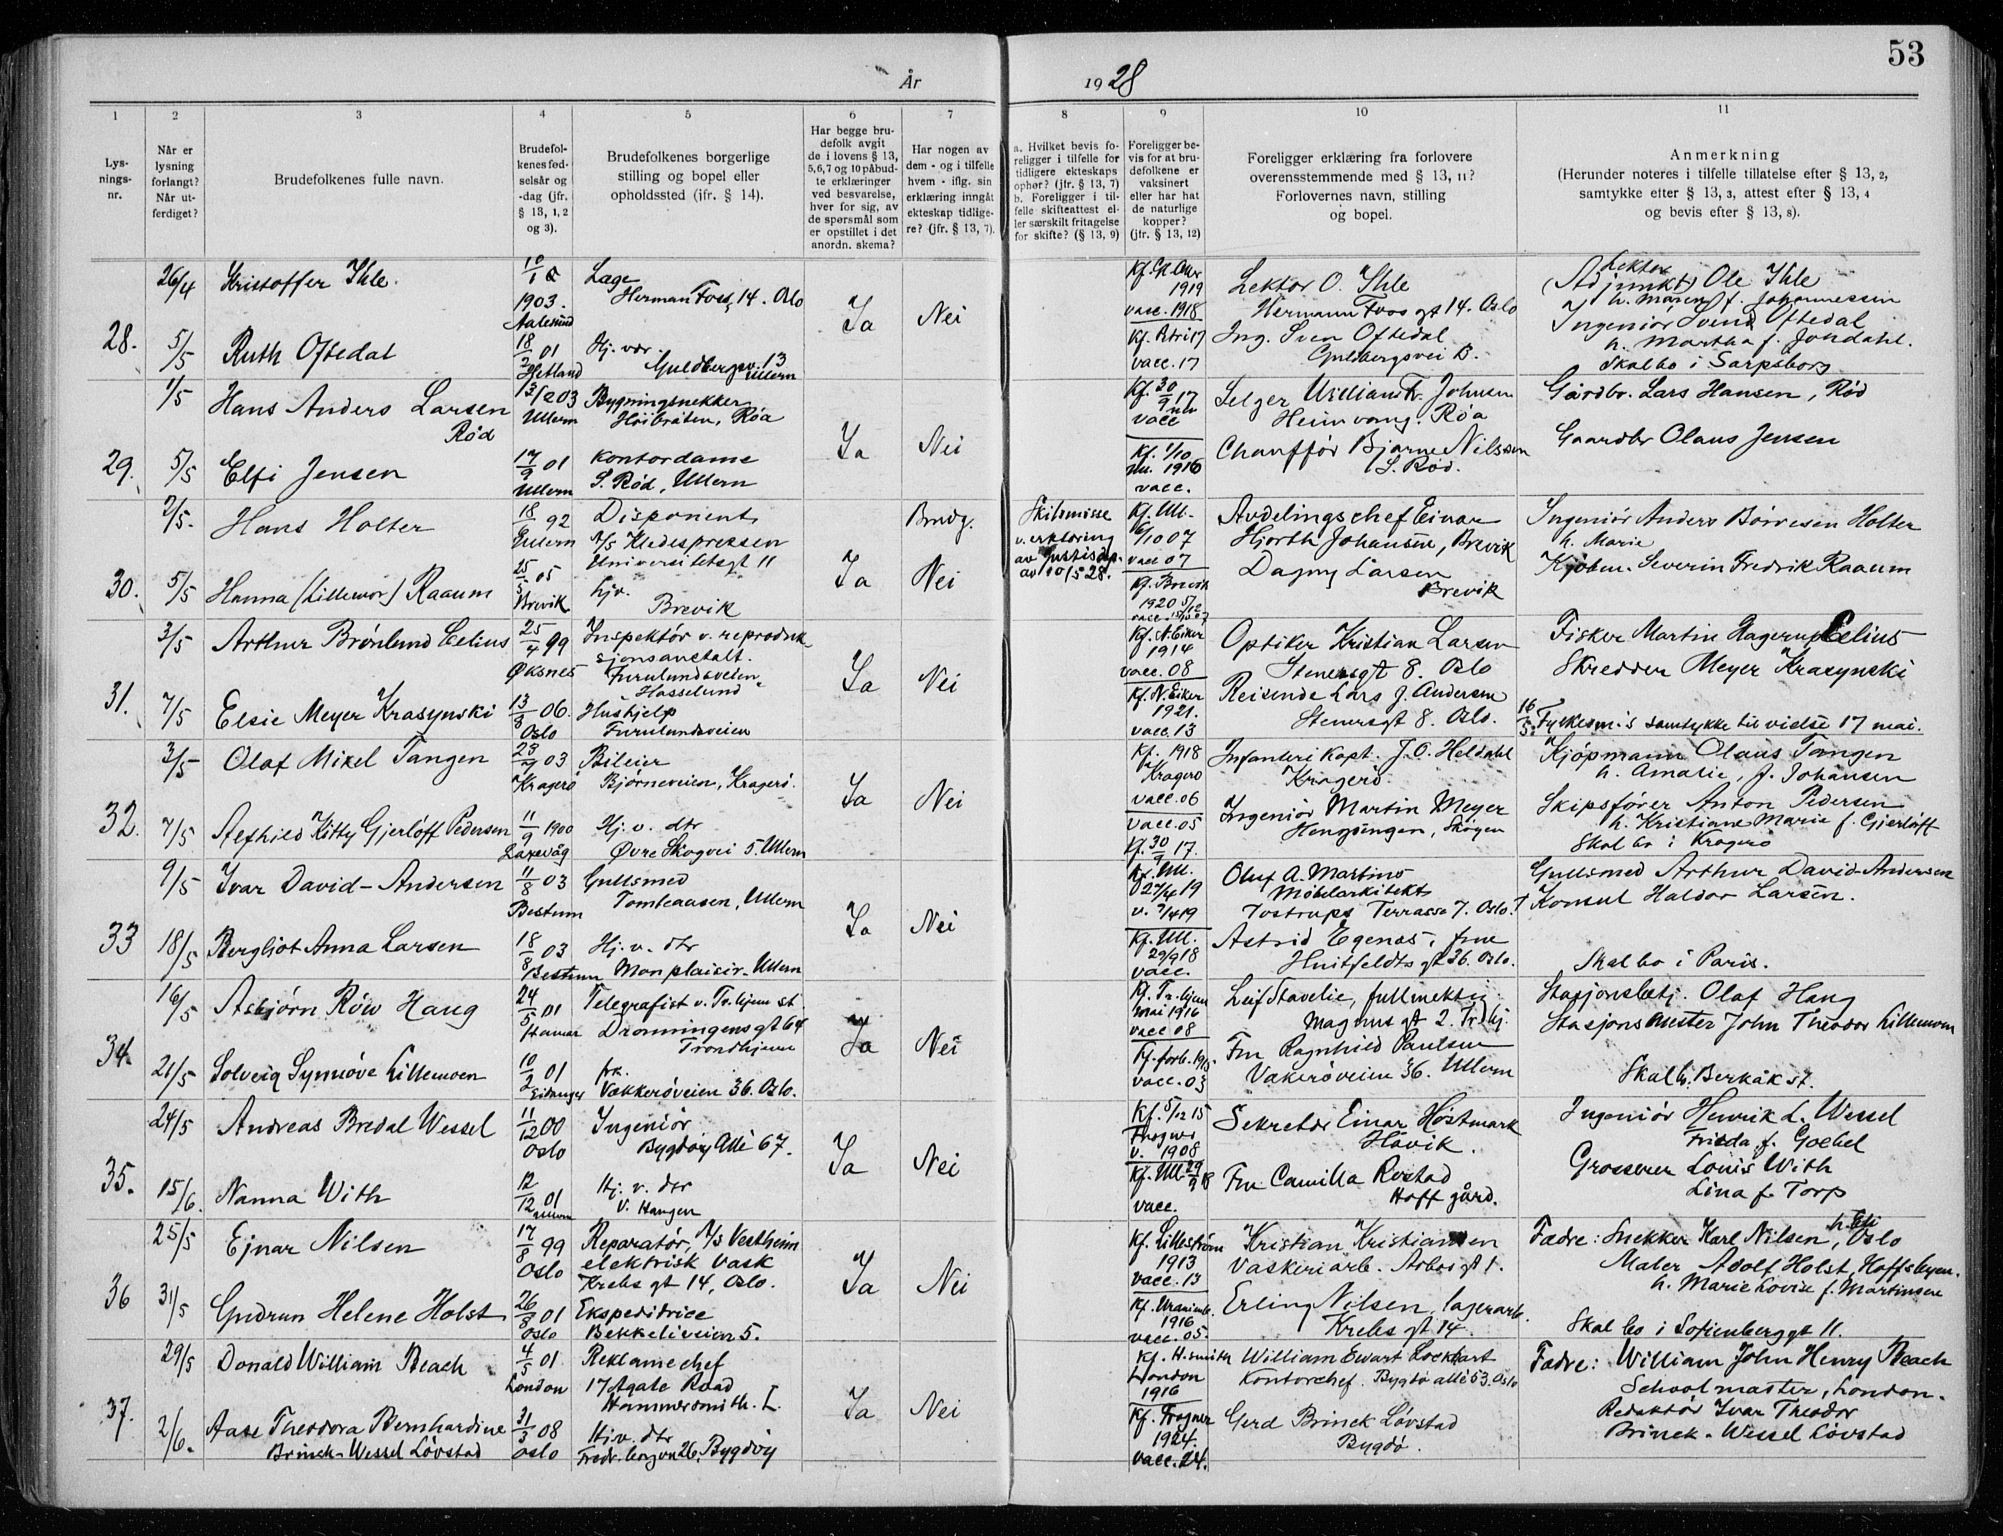 53
År 1928
1 2 3 4 5 6 7 8 9 10 11
Lysnings-nr.
Når er lysning forlangt? Når utferdiget?
Brudefolkenes fulle navn.
Brudefolkenes fødselsår og -dag (jfr. § 13, 1, 2 og 3).
Brudefolkenes borgerlige stilling og bopel eller opholdssted (jfr. § 14).
Har begge brudefolk avgit de i lovens § 13, 5,6,7 og 10 påbudte erklæringer ved besvarelse, hver for sig, av de spørsmål som er opstillet i det anordn. skema?
Har nogen av dem - og i tilfelle hvem - iflg. sin erklæring inngått ekteskap tidligere? (jfr. § 13, 7).
a. Hvilket bevis foreligger i tilfelle for tidligere ekteskaps ophør? (jfr. § 13, 7) b. Foreligger i tilfelle skifteattest eller særskilt fritagelse for skifte? (§ 13, 9)
Foreligger bevis for at brudefolkene er vaksinert eller har hat de naturlige kopper? (jfr. § 13, 12)
Foreligger erklæring fra forlovere overensstemmende med § 13, 11? Forlovernes navn, stilling og bopel.
Anmerkning (Herunder noteres i tilfelle tillatelse efter § 13, 2, samtykke efter § 13, 3, attest efter § 13, 4 og bevis efter § 13, 8).
28.
26/4 Kristoffer Ihle.
1903. Aalesund
Læge Herman Foss 14. Oslo
Ja Nei
1919 vacc. 1918
Lektor O. Ihle
Hermann Foss gt 14. Oslo
Lektor (Adjunkt) Ole Ihle
h. Maren f. Johannessen
5/5 Ruth Oftedal
18/2 01 Hetland
Hj. vær. Guldbergsv. 13 Ullern
vacc. 17
Ing. Sven Oftedal
Gulbergsvei B.
Ingeniør Svend Oftedal
h. Martha f. Johdahl.
Skal bo i Sarpsborg
29.
1/5 Hans Anders Larsen Rød
03 Ullern
Bygningsnekker Høibråten, Røa
Ja Nei
Kf. 30/9 17 vacc
Selger William Fr. Johnsen
Heimvang. Røa
Gårdbr. Lars Hansen, Rød
5/5 Elfi Jensen
17/9 01 Ullern
Kontordame S. Rød, Ullern
Kf. 1/10 1916 vacc.
Chauffør Bjarne Nilssen
S. Rød.
Gaardbr Olaus Jensen
30.
2/5. Hans Holter
18 92 Ullern
Disponent A/S Kledespressen Universitetsgt 11
Ja
Brudg.
Skilsmisse v. erklæring av Justisdep. av 10/5 28.
Kf. Ull. 07 vacc 07
Avdelingschef Einar
Hjorth Johansen, Brevik
Ingeniør Anders Børresen Holter
h. Marie
5/5 Hanna (Lillemor) Raaum
25/5 05 Brevik
hjv. Brevik
Nei
Kf. Brevik 1920
Dagny Larsen
Brevik
Kjøbm. Severin Fredrik Raaum
31.
3/5 Arthur Brønlund Celius
25/4 99 Øksnes
Inspektør v. reproduksjonsanstalt. Furulundsveien, Hasselund
Ja Nei
Kf. N. Eiker 1914 vacc. 08
Optiker Kristian Larsen
Stenersgt 8. Oslo
Fisker Martin Hagerup Celius
7/5 Elsie Meyer Krasynski
13/8 06. Oslo
Hushjelp Furulundsveien
Kf. N. Eiker 1921. vacc. 13
Reisende Lars J. Andersen
Stenersgt 8. Oslo.
Skredder Meyer Krasynski
16/5: Fylkesm's samtykke til vielse 17 mai.
32.
3/5 Olaf Mikel Tangen
03 Kragerø
Bileier Bjørneveien, Kragerø.
Ja Nei
Kf. 1918 Kragerø vacc. 06
Infanteri Kapt. J. O. Heldahl
Kragerø
Kjøpmann Olaus Tangen
h. Amalie, f. Johansen
7/5 Kitty Gjerløff Pedersen
11/9 1900 Laxevåg
Hj. v. dtr Øvre Skogvei 5. Ullern
vacc. 05 Kf. 30/9 17.
Ingeniør Martin Meyer
Hengsengen, Skøyen
Skipsfører Anton Pedersen
h. Kristiane Marie f. Gjerløff
Skal bo i Kragerø
33
9/5 Ivar David-Andersen
11/8 03 Bestum
Gullsmed Tomteaasen, Ullern
Ja Nei
Kf. Ull. 27/4 19
Oluf A. Martins
Møbelarkitekt
Tostrups Terrasse 7. Oslo.
Gullsmed Arthur David-Andersen
18/5 Bergljot Anna Larsen
18/8 03 Bestum
Hj. v. dtr Mon plaisir. Ullern
Kf. Ull. 29/9 18 vacc.
Astrid Egenæs, frue
Huitfeldts gt 36. Oslo.
Konsul Haldor Larsen.
Skal bo i Paris.
34.
16/5 Asbjørn Røw Haug
24/5 01 Hamar
Telegrafist v. Tr.hjem st. Dronningensgt 64 Trondhjem
Ja Nei
Kf. Tr.hjem mai 1916 vacc 08
Leif Stavelie, fullmektig
Magnus gt 2. Trdhj.
Stasjonsbetj. Olaf Haug
21/5 Solveig Synnøve Lillemoen
10/2 01 Eidanger
frk. Vækkerøveien 36. Oslo.
vacc. 03
Fru Ragnhild Paulsen
Vækerøveien 36. Ullern
Stasjonsmester John Theodor Lillemoen
Skal b. Berkåk st.
35.
24/5 Andreas Bredal Wessel
11/12 00 Oslo
Ingeniør Bygdøy Allé 67.
Ja Nei
Kf. 5/12 15 Frogner v. 1908
Sekretær Einar Høstmark
Høvik.
Ingeniør Henrik L. Wessel
Frieda f. Goebel
15/6. Nanna With
12/12 01 Ullern
Hj. v. dtr V. Haugen
Kf. Ull. 29/9 18 vacc.
Fru Camilla Røstad
Hoff gård.
Grosserer Louis With
Lina f. Torp
36
25/5 Ejnar Nilsen
17/8 99 Oslo
Reparatør, A/S Vestheim elektrisk Vask Krebs gt 14, Oslo.
Ja Nei
Kf. Lillestrøm 1913 vacc. 13
Kristian Kristiansen
Vaskeriarb. Arbosgt 1.
Fædre: Snekker Karl Nilsen, Oslo
31/5 Gudrun Helene Holst
26/8 01 Oslo
Ekspeditrice Bekkeliveien 5.
Kf. Uranienb. 1916 vacc. 05.
Erling Nilsen, lagerarb.
Krebs gt 14.
Maler Adolf Holst, Hoffsbyen.
h. Marie Lovise f. Martinsen
Skal bo i Sofienberggt 11.
37.
29/5 Donald William Beach
4/5 01 London
Reklamechef 17 Agate Road Hammersmith. L.
Ja Nei
Kf. H.smith London 1916
William Ewart Lockhart
Kontorchef. Bygdø allé 53. Oslo
Fædre: William John Henry Beach
Schoolmaster, London.
2/6. Aase Theodora Bernhardine Brinck-Wessel Løvstad
31/3 08 Oslo
Hjv. dtr Fredr. borgvn 26, Bygdøy
Kf. Frogner 1924 vacc. 24.
Gerd Brinck Løvstad
Bygdø.
Redaktør Ivar Theodor
Brinck-Wessel Løvstad